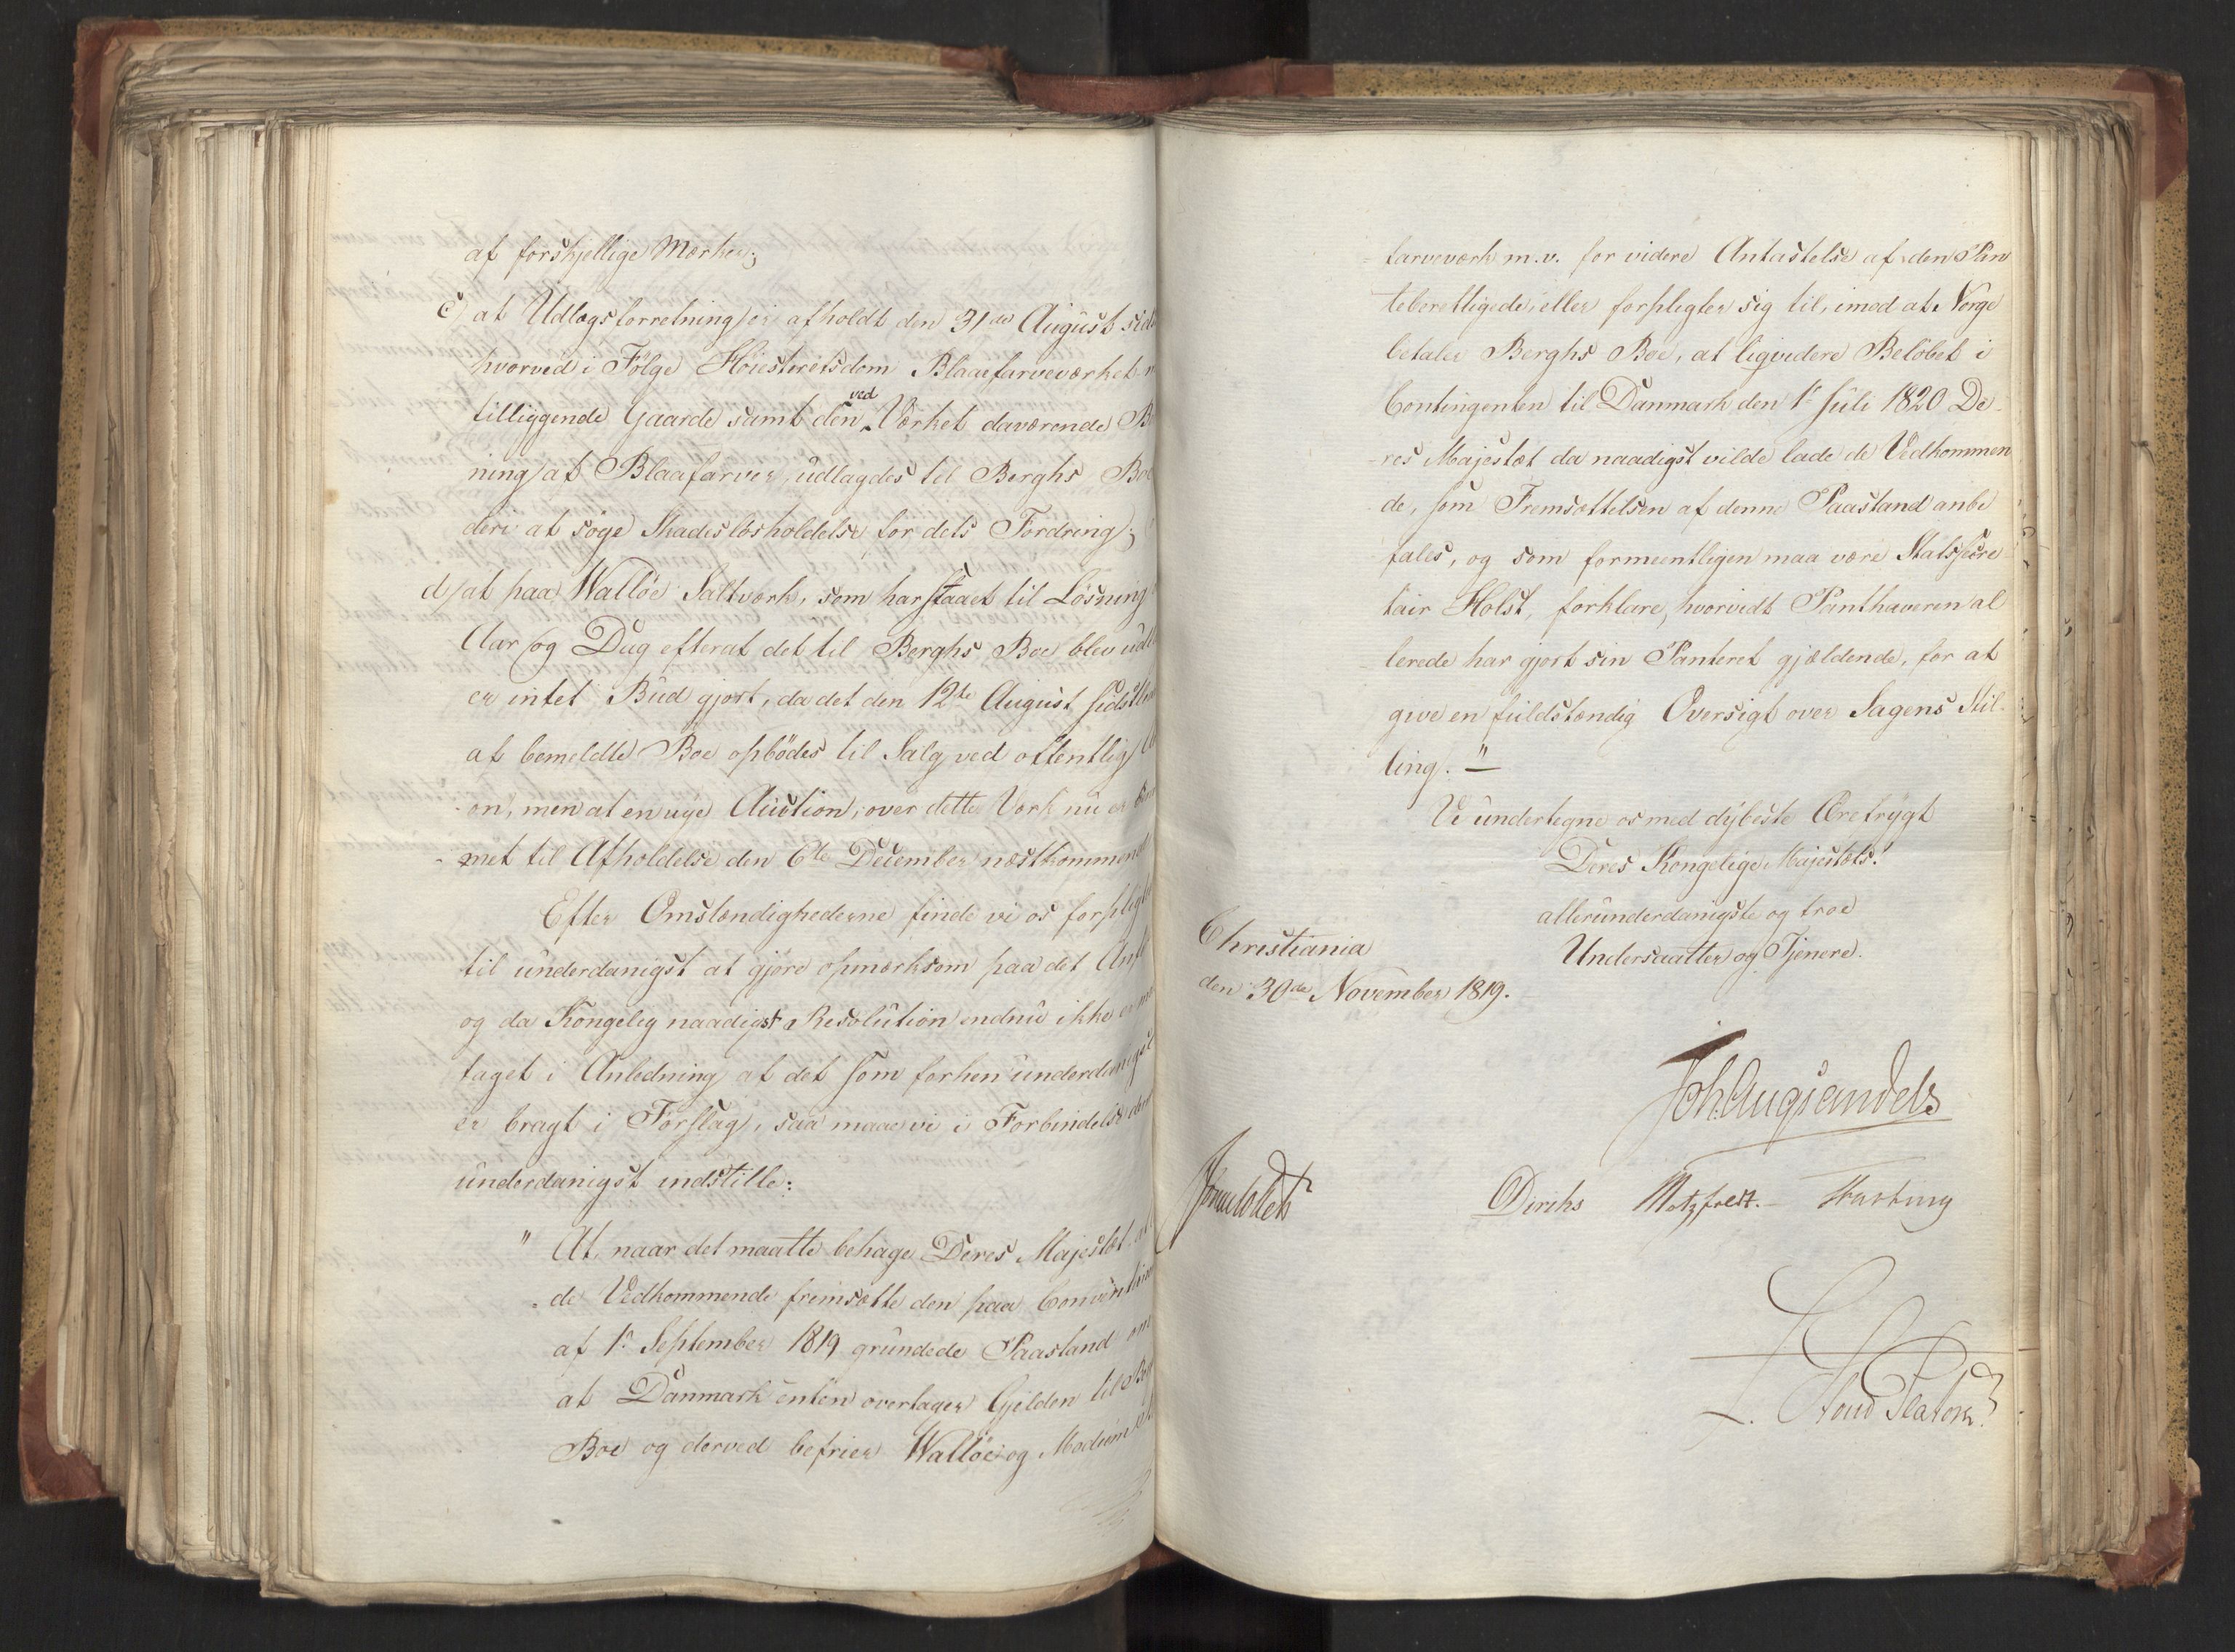 af forskjellige Mærker;
c) at Udlægsforretning er afholdt den 31de August
hvorved i Følge Höiesteretsdom Blaaefarveværket
tilliggende Gaarde samt den ved Værket daværende
ning af Blaafarver, udlagdes til Berghs Boe
deri at söge Skadeslösholdelse for dets Fordring;
d) at paa Wallöe Saltværk, som har staaet til Lösning
Aar og Dag efterat det til Berghs Boe blev
er intet Bud gjort, da det den 12te August
af bemeldte Boe opbödes til Salg ved offentlig
on, men at en nye Auction, over dette Værk nu er
met til Afholdelse den 6te December næstkommende
Efter Omstændighederne finde vi os forpligtet
til underdanigst at gjøre opmærksom paa det
og da Kongelig naadigst Resolution endnu ikke er
taget i Anledning af det som forhen underdanigst
er bragt i Forslag, saa maae vi i Forbindelse
underdanigst indstille:
" At naar det maatte behage Deres Majestæt
de Vedkommende fremsætte den paa Conventionen
af 1. September 1819 grundede Paastand om
at Danmark enten overtager Gjelden til
Boe og derved befrier Wallöe og Modum
farveværk m. v. for videre Antastelse af den Pan
teberettigede, eller forpligter sig til, imod at Norge
betaler Berghs Boe, at liqvidere Belöbet i
Contingenten til Danmark den 1. Juli 1820 De-
res Majestæt da naadigst vilde lade de Vedkommen
de, som Fremsættelsen af denne Paastand anbe
fales, og som formeentligen maa være Statssecre
tair Holst, forklare, hvorvidt Panthaveren al
lerede har gjort sin Panteret gjældende, for at
give en fuldstændig Oversigt over Sagens Stil-
ling. "
Vi undertegne os med dybeste Ærefrygt
Deres Kongelige Majestæts!
allerunderdanigste og troe
Undersaatter og Tjenere.
Christiania
den 30de November 1819.
Joh. Aug. Sandels
Diriks Motzfeldt.